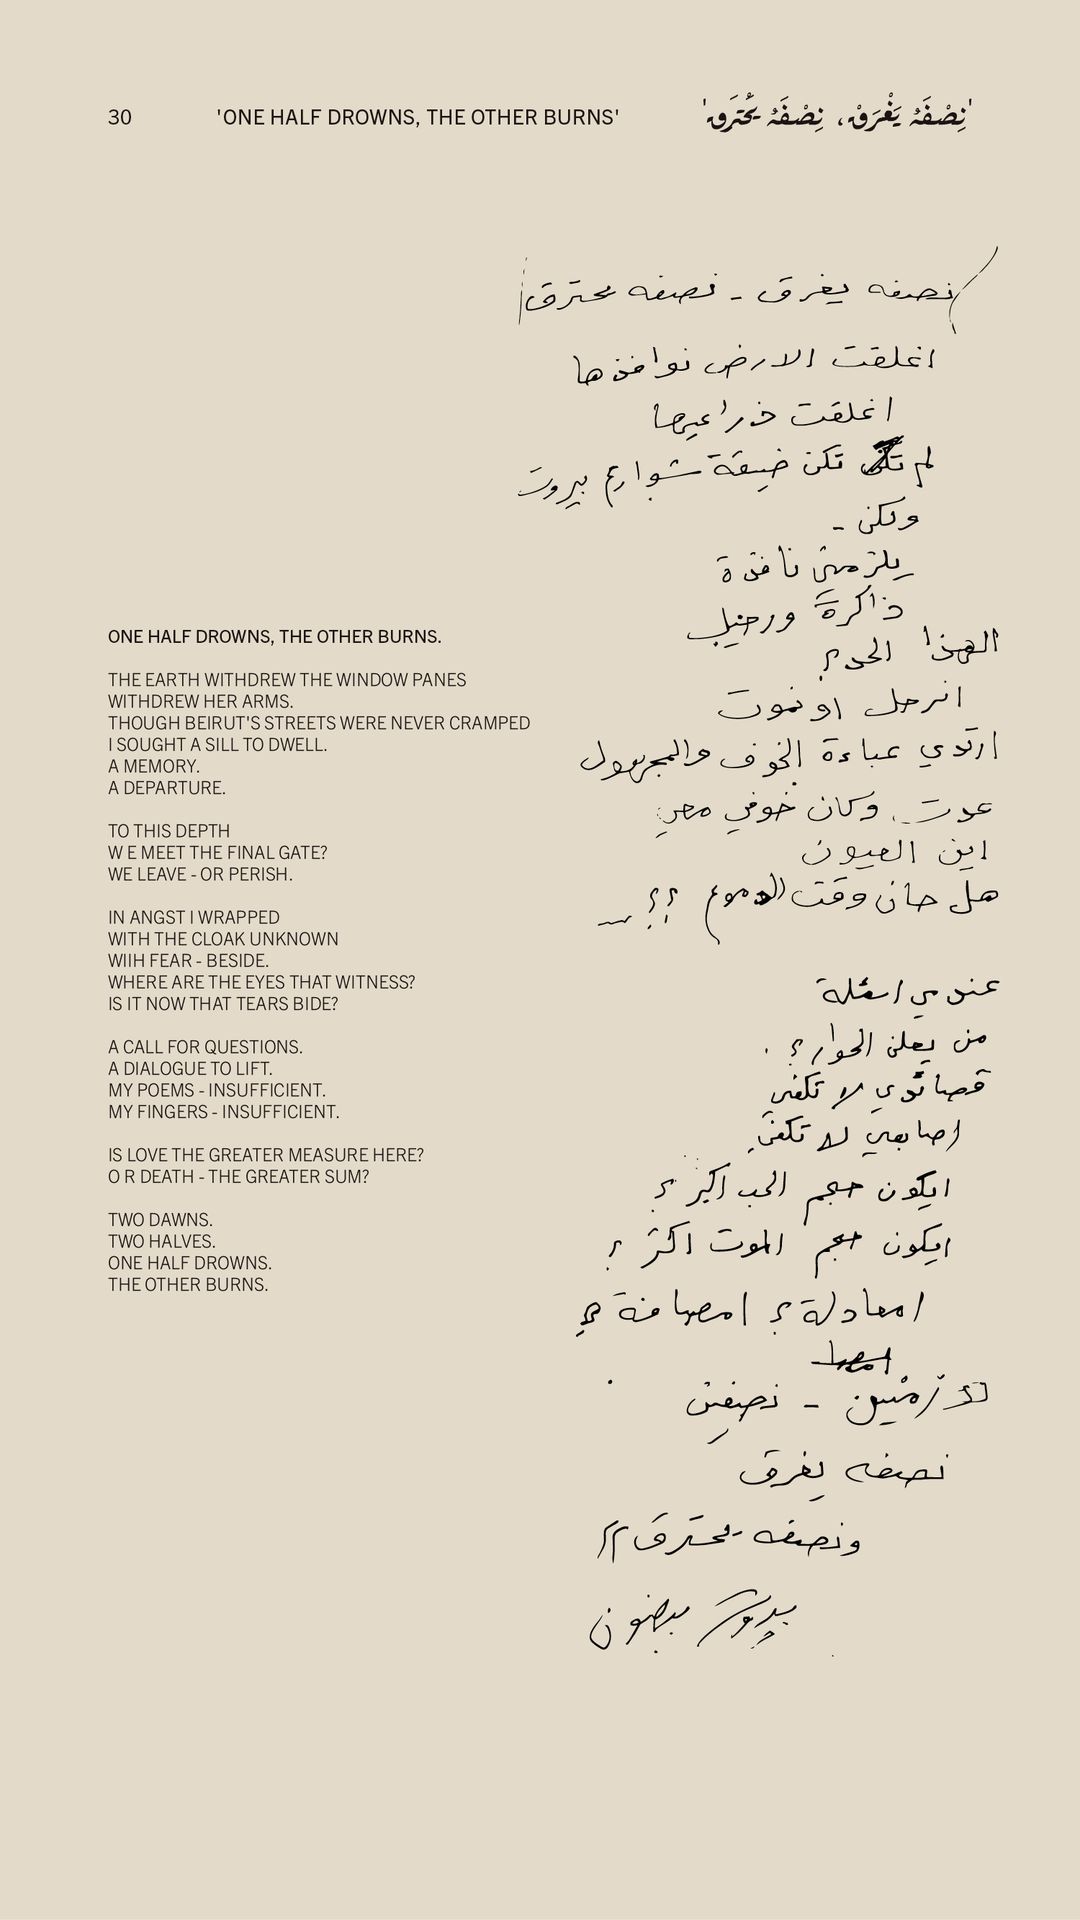 30
'ONE HALF DROWNS, THE OTHER BURNS'
'نِصْفَهُ يَغْرَقْ، نِصْفَهُ يَحْتَرَقْ'
نصفه يغرق - نصفه يحترق
اغلقت الارض نوافذها
اغلقت ذراعيها
لم تكن ضيقة شوارع بيروت
ولكن -
يلزمني نافذة
ذاكرة ورحيل
الهذا الحد؟
انرحل او نموت
ارتدي عباءة الخوف والمجهول
عدت وكان خوفي معي
اين العيون
هل حان وقت الدموع ؟؟
عندي اسئلة
من يعلن الحوار؟
قصائدي لا تكفي
اصابعي لا تكفي
ايكون حجم الحب اكبر؟
ايكون حجم الموت اكثر؟
امعادلة؟ امصافة؟
زمنين - نصفين
نصفه يغرق
ونصفه يحترق //
بيروت
ONE HALF DROWNS, THE OTHER BURNS.
THE EARTH WITHDREW THE WINDOW PANES
WITHDREW HER ARMS.
THOUGH BEIRUT'S STREETS WERE NEVER CRAMPED
I SOUGHT A SILL TO DWELL.
A MEMORY.
A DEPARTURE.
TO THIS DEPTH
W E MEET THE FINAL GATE?
WE LEAVE - OR PERISH.
IN ANGST I WRAPPED
WITH THE CLOAK UNKNOWN
WIIH FEAR - BESIDE.
WHERE ARE THE EYES THAT WITNESS?
IS IT NOW THAT TEARS BIDE?
A CALL FOR QUESTIONS.
A DIALOGUE TO LIFT.
MY POEMS - INSUFFICIENT.
MY FINGERS - INSUFFICIENT.
IS LOVE THE GREATER MEASURE HERE?
O R DEATH - THE GREATER SUM?
TWO DAWNS.
TWO HALVES.
ONE HALF DROWNS.
THE OTHER BURNS.